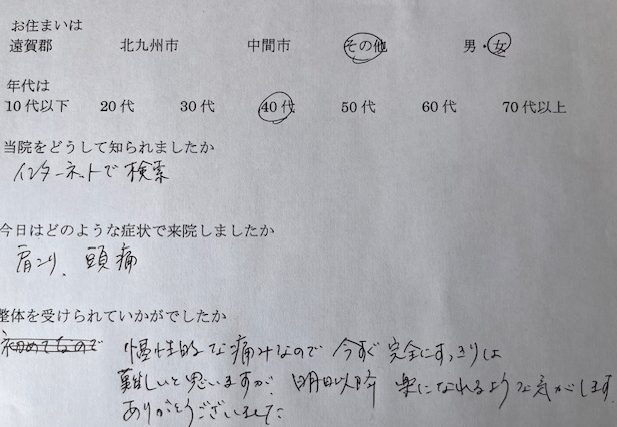 お住まいは
遠賀郡 北九州市 中間市 その他 男・女
年代は
10代以下 20代 30代 40代 50代 60代 70代以上
当院をどうして知られましたか
インターネットで検索
今日はどのような症状で来院しましたか
肩こり、頭痛
整体を受けられていかがでしたか
初めてなので 慢性的な痛みなので 今すぐ完全にすっきりは
難しいと思いますが、明日以降 楽になれるような気がします。
ありがとうございました